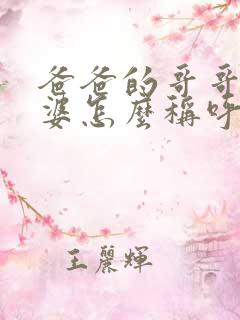 爸爸的哥哥
婆怎麼稱呼
王麗輝